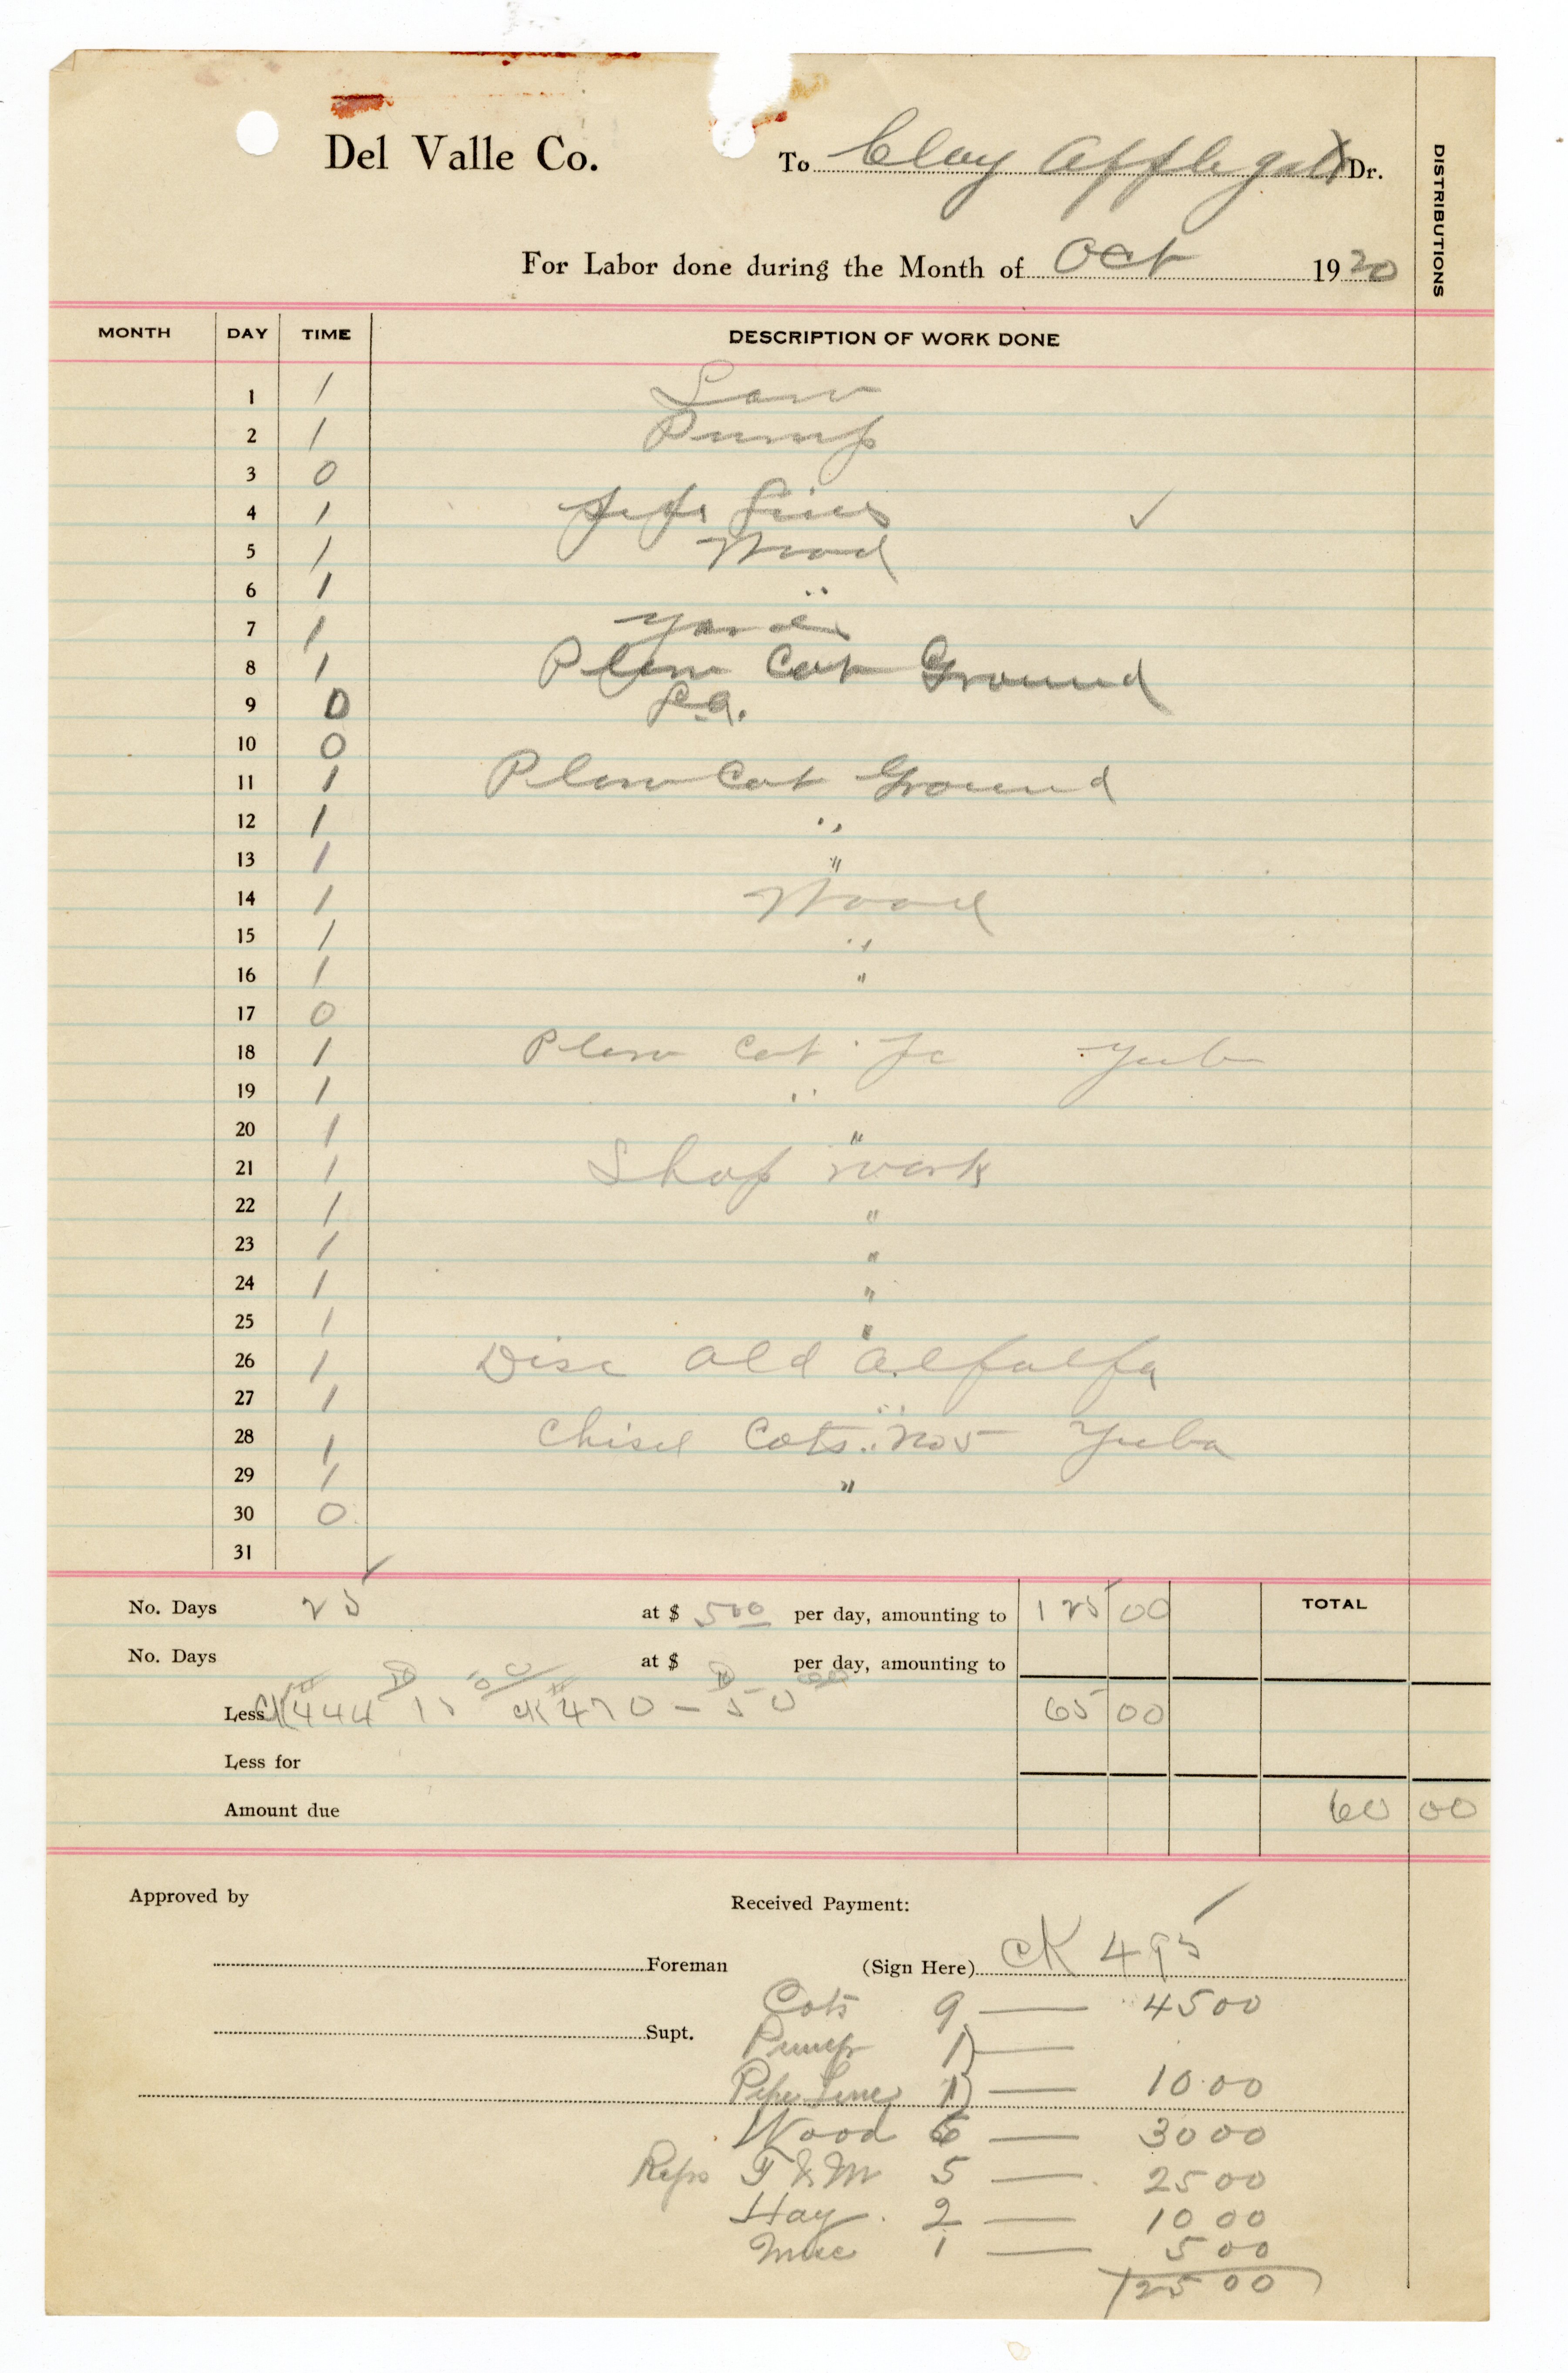 Del Valle Co. To Clay Applegate Dr.
DISTRIBUTIONS
For Labor done during the Month of Oct 1920
MONTH DAY TIME DESCRIPTION OF WORK DONE
1 1 Saw
2 1 Pump
3 0
4 1 Pipe Lines ✓
5 1 Wood
6 1 "
7 1 Yard
8 1 Plow Cot Ground
9 0 L.A.
10 0
11 1 Plow Cot Ground
12 1 "
13 1 "
14 1 Wood
15 1 "
16 1 "
17 0
18 1 Plow Cot Yub
19 1 "
20 1 "
21 1 Shop work
22 1 "
23 1 "
24 1 "
25 1 "
26 1 Disc Old Alfalfa
27 1 "
28 1 Chisel Cots No 5 Yuba
29 1 "
30 0
31
No. Days 25 at $ 5 00 per day, amounting to 125 00 TOTAL
No. Days at $ per day, amounting to
Less CK 444 15 00 CK 470 - 50 00 65 00
Less for
Amount due 60 00
Approved by Received Payment:
Foreman (Sign Here) CK 495
Cots 9 — 45 00
Supt. Pump 1 —
Pipe Line 1 — 10 00
Wood 6 — 30 00
Reps T & M 5 — 25 00
Hay 2 — 10 00
Misc 1 — 5 00
125 00